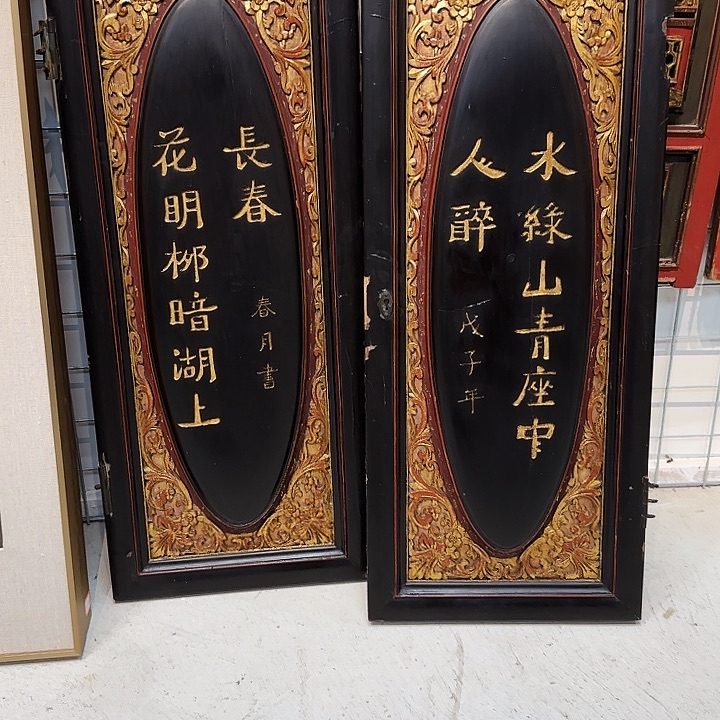 水綠山青座中
人醉
戊子年
花明柳暗湖上
長春
春月書